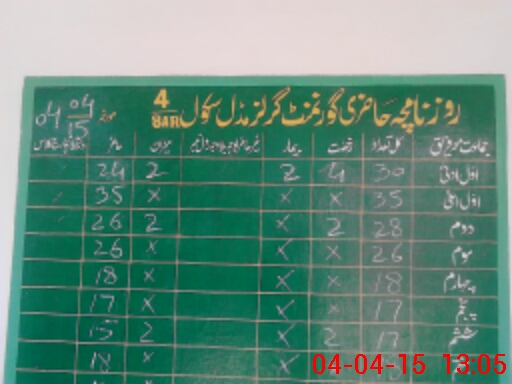 روزنامچہ حاضری گورنمنٹ گرلز مڈل سکول 4/8AR
مورخہ 04 04/15
جماعت کل تعداد رخصت بیمار میزان حاضر
اول ادنیٰ 30 4 2 2 24
اول اعلیٰ 35 x x x 35
دوم 28 2 x 2 26
سوم 26 x x x 26
چہارم 18 x x x 18
پنجم 17 x x x 17
ششم 17 2 x 2 15
x x 18
04-04-15 13:05